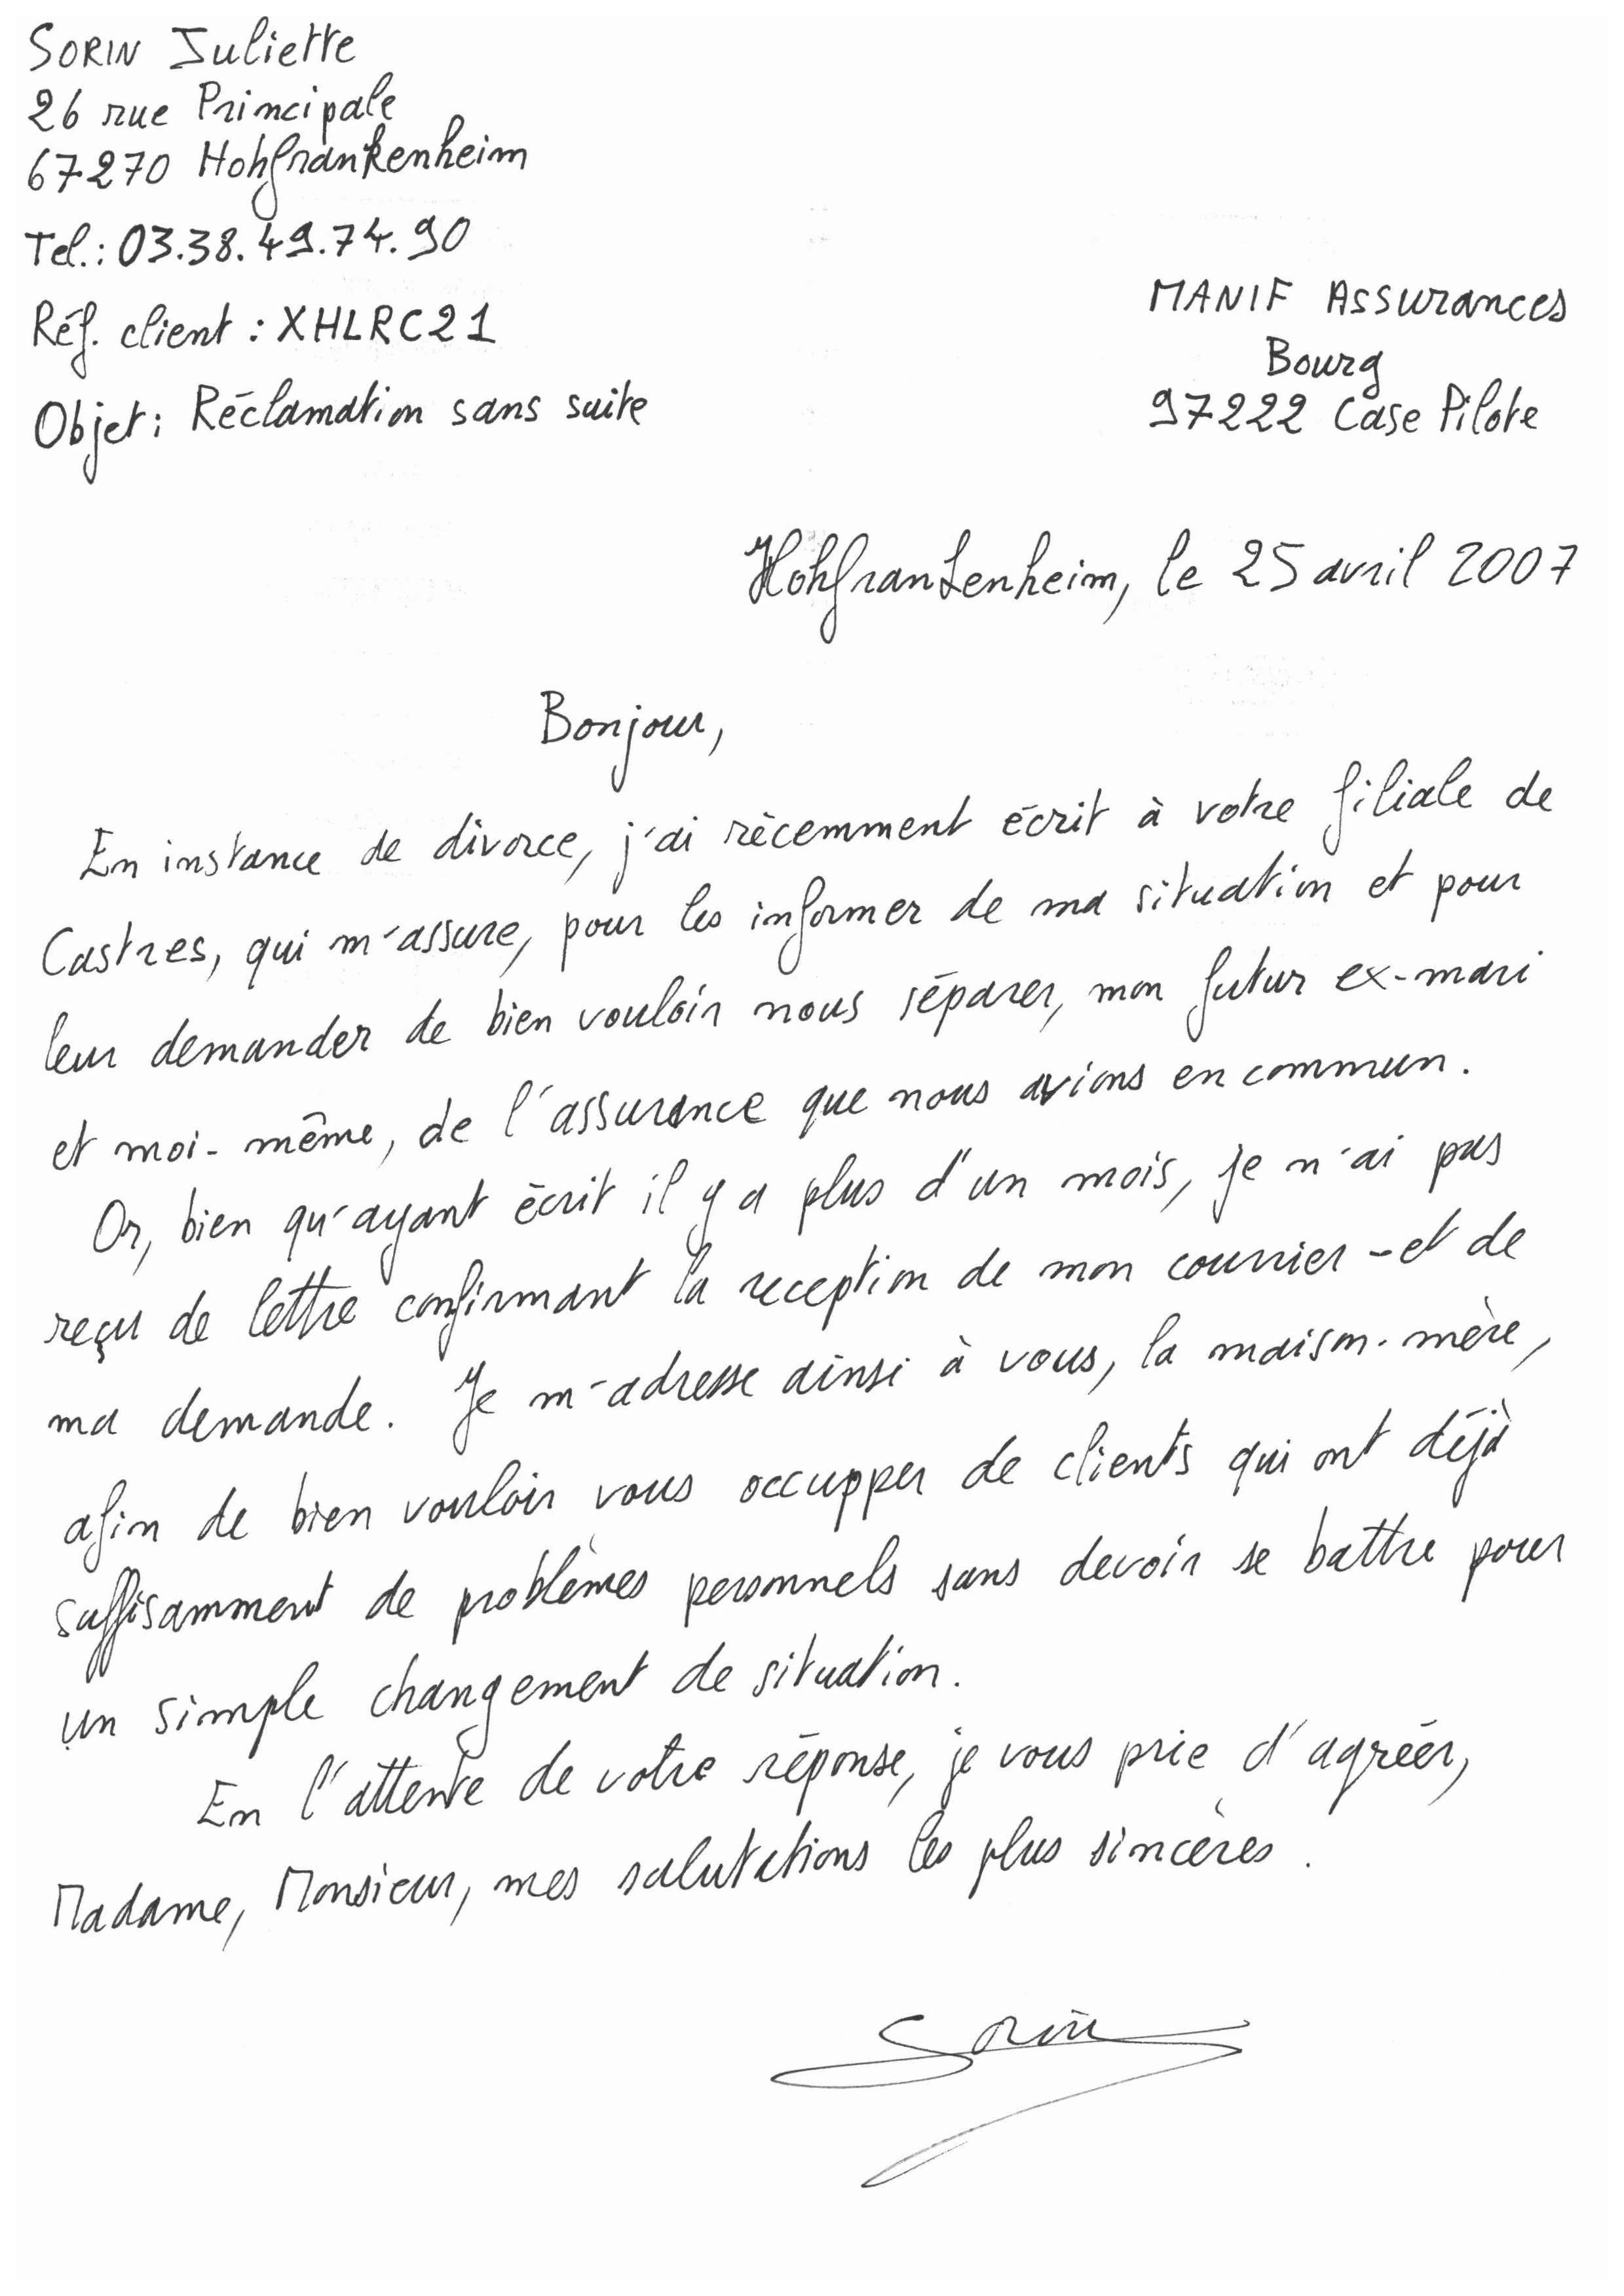 SORIN Juliette
26 rue Principale
67270 Hohfrankenheim
Tel.: 03.38.49.74.90
Réf. client : XHLRC21
Objet: Réclamation sans suite
MANIF Assurances
Bourg
97222 Case Pilote
Hohfrankenheim, le 25 avril 2007
Bonjour,
En instance de divorce, j'ai récemment écrit à votre filiale de
Castres, qui m'assure, pour les informer de ma situation et pour
leur demander de bien vouloir nous séparer, mon futur ex-mari
et moi-même, de l'assurance que nous avions en commun.
Or, bien qu'ayant écrit il y a plus d'un mois, je n'ai pas
reçu de lettre confirmant la reception de mon courrier - et de
ma demande. Je m'adresse ainsi à vous, la maison-mère,
afin de bien vouloir vous occupper de clients qui ont déjà
suffisamment de problèmes personnels sans devoir se battre pour
un simple changement de situation.
En l'attente de votre réponse, je vous prie d'agréér,
Madame, Monsieur, mes salutations les plus sincères.
Sorin